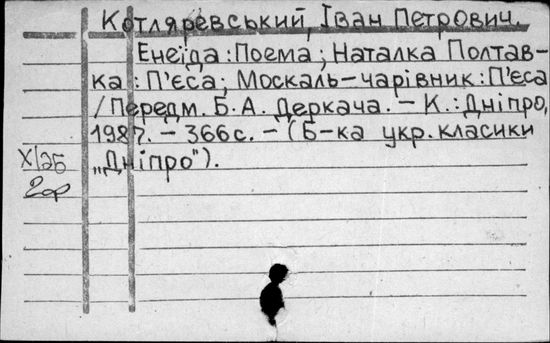 Котляревський, Іван Петрович.
Енеїда : Поема ; Наталка Полтав-
ка : П'єса ; Москаль-чарівник : П'єса
/ Передм. Б. А. Деркача. – К. : Дніпро,
1987. – 366 с. – (Б-ка укр. класики
„Дніпро").